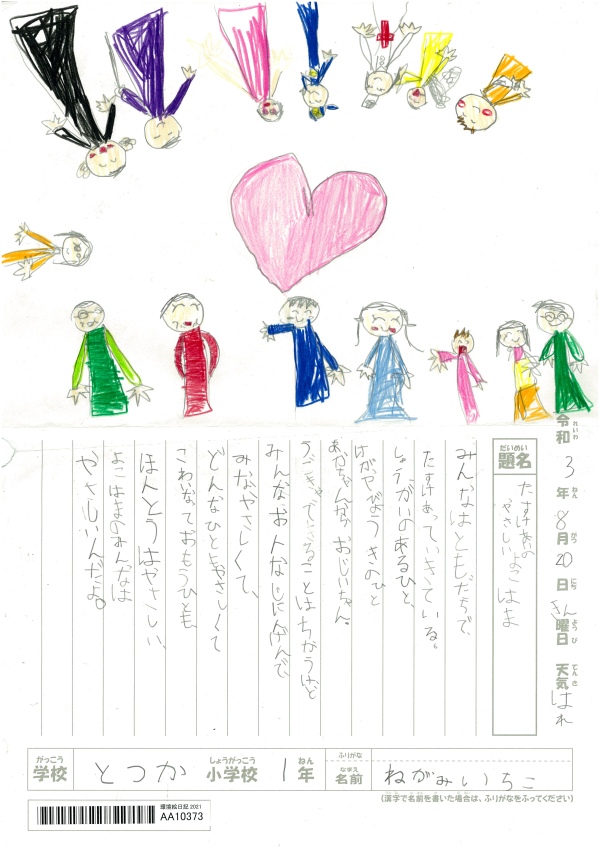 令和 3 年 8 月 20 日 きん 曜日 天気 はれ
れいわ ねん がつ にち ようび てんき
だいめい
題名
たすけあいの
やさしい よこはま
みんなはともだちで、
たすけあっていきている。
しょうがいのあるひと、
けがやびょうきのひと
あかちゃんからおじいちゃん。
うごきやできることはちがうけど
みんなおんなじにんげんで
みなやさしくて、
どんなひともやさしくて
こわいなっておもうひとも、
ほんとうはやさしい、
よこはまのみんなは
やさしいんだよ。
がっこう
学校
とつか
しょうがっこう
小学校
1
ねん
年
ふりがな
なまえ
名前
ねがみいちこ
(漢字で名前を書いた場合は、ふりがなをふってください)
環境絵日記 2021
AA10373